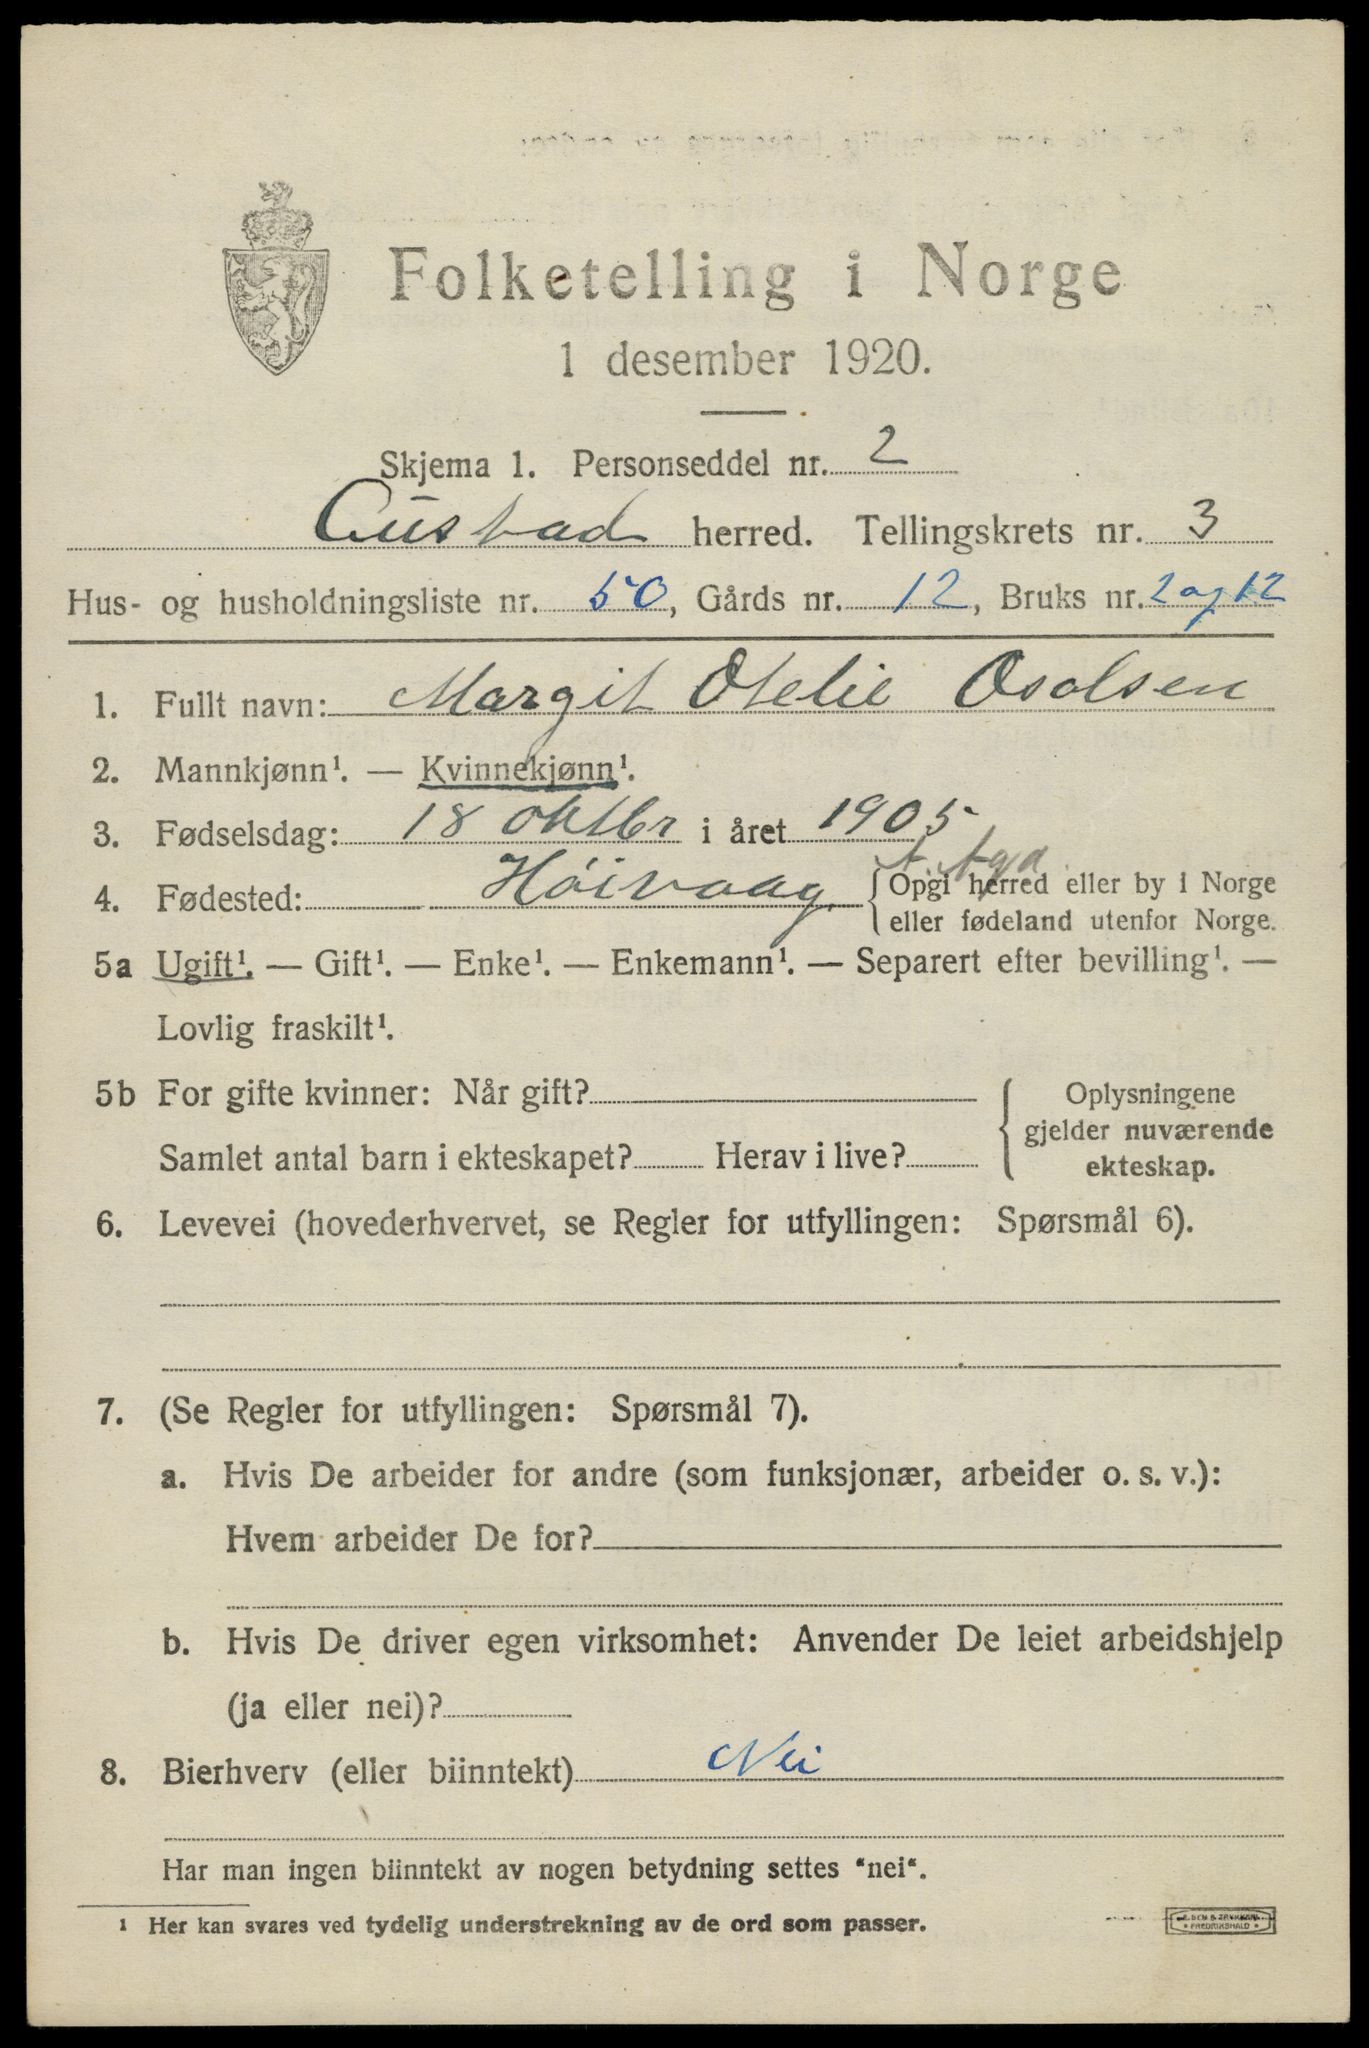 Folketelling i Norge
1 desember 1920.
Skjema 1. Personseddel nr. 2
herred. Tellingskrets nr. 3
Hus- og husholdningsliste nr. 50, Gårds nr. 12, Bruks nr. 2 og 12
1. Fullt navn: Margit Otelie Osolsen
2. Mannkjønn¹. — Kvinnekjønn¹.
3. Fødselsdag: 18 oktbr i året 1905
4. Fødested: Höivaag {Opgi herred eller by i Norge
eller fødeland utenfor Norge.
5a Ugift¹. — Gift¹. — Enke¹. — Enkemann¹. — Separert efter bevilling¹. —
Lovlig fraskilt¹.
5b For gifte kvinner: Når gift? { Oplysningene
gjelder nuværende
Samlet antal barn i ekteskapet? Herav i live?
ekteskap.
6. Levevei (hovederhvervet, se Regler for utfyllingen: Spørsmål 6).
7. (Se Regler for utfyllingen: Spørsmål 7).
a. Hvis De arbeider for andre (som funksjonær, arbeider o. s. v.):
Hvem arbeider De for?
b. Hvis De driver egen virksomhet: Anvender De leiet arbeidshjelp
(ja eller nei)?
8. Bierhverv (eller biinntekt) Nei
Har man ingen biinntekt av nogen betydning settes "nei".
¹ Her kan svares ved tydelig understrekning av de ord som passer.
FREDRIKSHALD